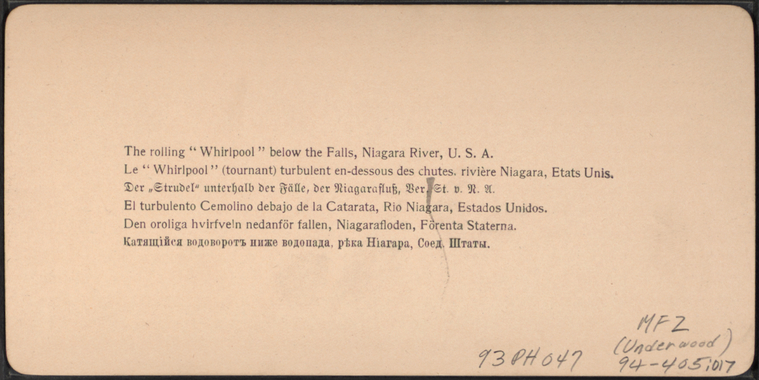 The rolling “ Whirlpool ” below the Falls, Niagara River, U. S. A.
Le “ Whirlpool ” (tournant) turbulent en-dessous des chutes. rivière Niagara, Etats Unis.
Der „Strudel“ unterhalb der Fälle, der Niagarafluß, Ver. St. v. N. A.
El turbulento Cemolino debajo de la Catarata, Rio Niagara, Estados Unidos.
Den oroliga hvirfveln nedanför fallen, Niagarafloden, Förenta Staterna.
Катящійся водоворотъ ниже водопада, рѣка Ніагара, Соед. Штаты.
MFZ
(Underwood)
93PH047
94-405:017